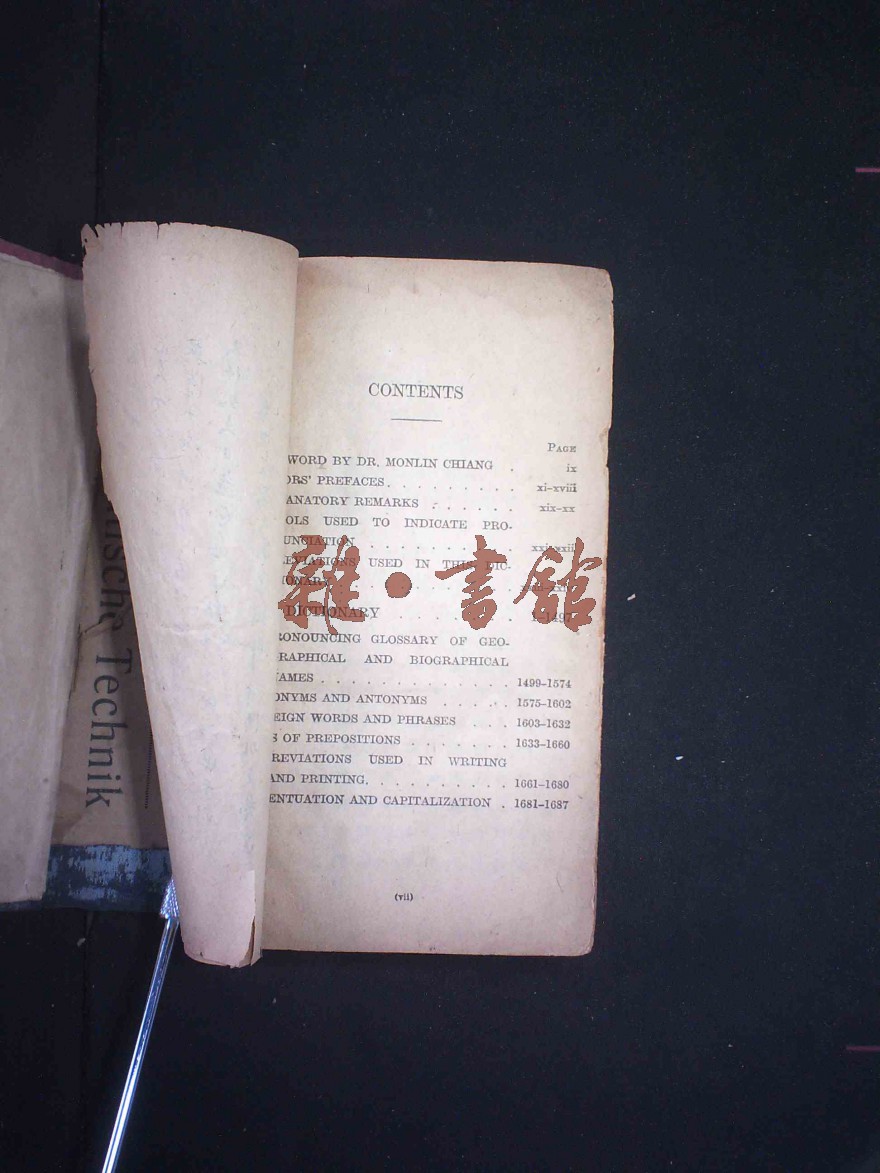 CONTENTS
PAGE
WORD BY DR. MONLIN CHIANG . ix
ORS' PREFACES. . . . . . . . . . xi-xviii
ANATORY REMARKS . . . . . . xix-xx
OLS USED TO INDICATE PRO-
UNCIATION . . . . . . . . . .
EVIATIONS USED IN THIS DIC-
IONARY
DICTIONARY . . . . . . 1-1497
RONOUNCING GLOSSARY OF GEO-
RAPHICAL AND BIOGRAPHICAL
AMES . . . . . . . . . . . . . 1499-1574
ONYMS AND ANTONYMS . . . . . 1575-1602
EIGN WORDS AND PHRASES . . . 1603-1632
S OF PREPOSITIONS . . . . . . . 1633-1660
REVIATIONS USED IN WRITING
AND PRINTING. . . . . . . . . . 1661-1680
ENTUATION AND CAPITALIZATION . 1681-1687
(vii)
雜·書館
Technik